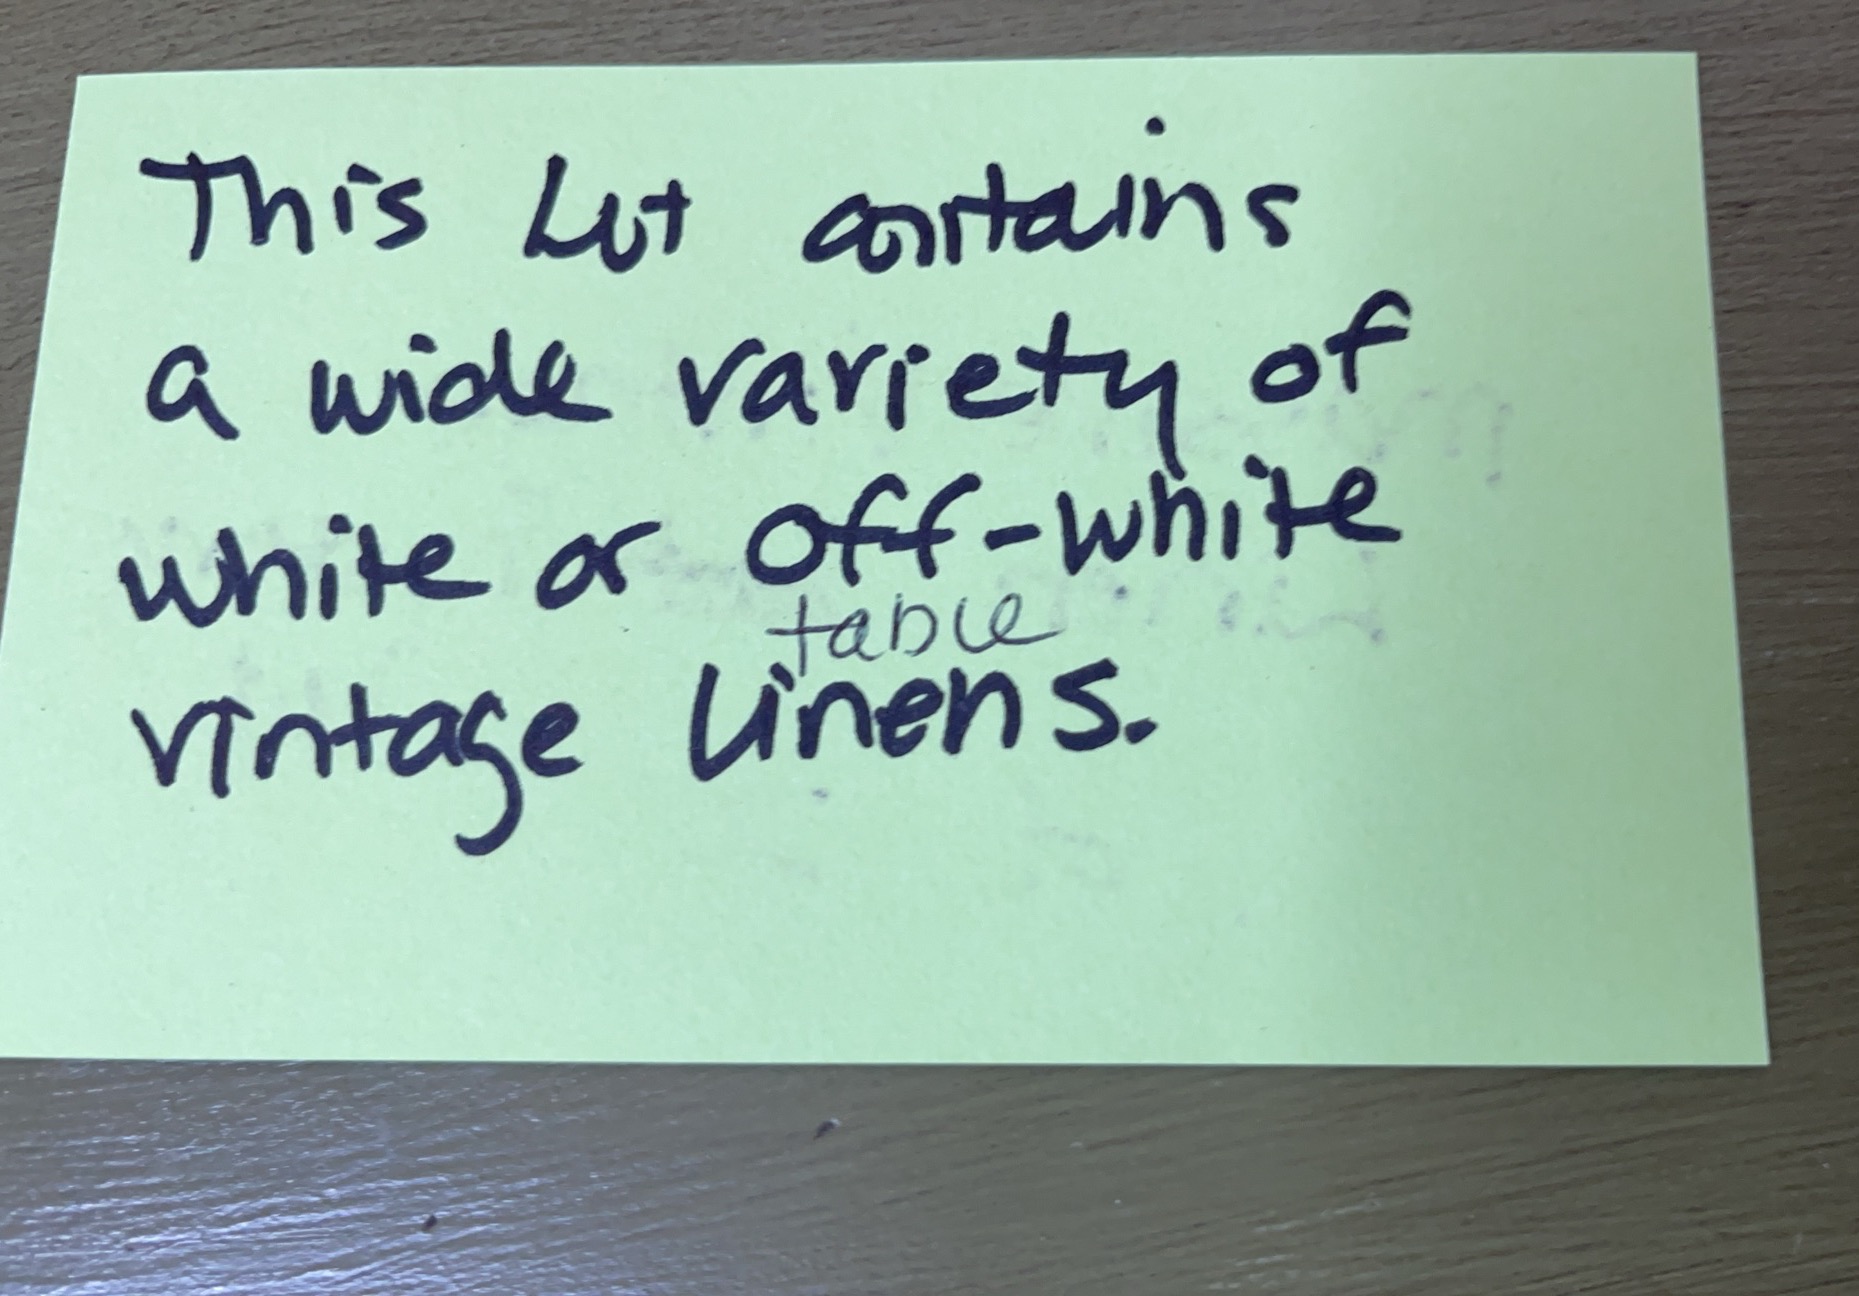 This Lot contains
a wide variety of
white or off-white
table
vintage linens.